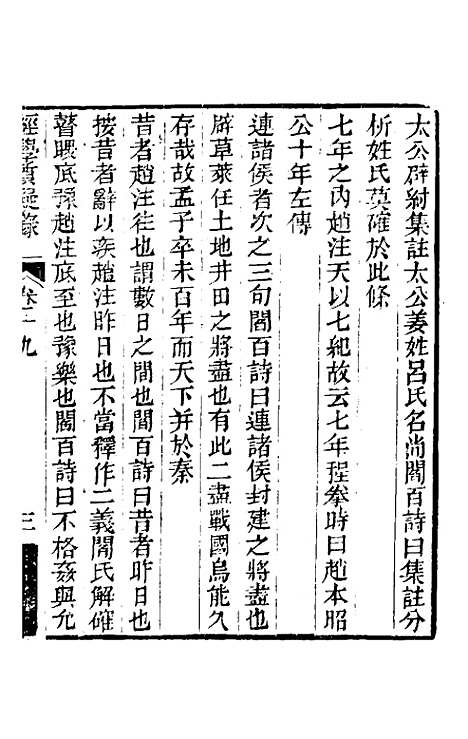 太公辟紂集註太公姜姓呂氏名尚閻百詩曰集註分
析姓氏莫確於此條
七年之內趙注天以七紀故云七年程拳時曰趙本昭
公十年左傳
連諸侯者次之三句閻百詩曰連諸侯封建之將盡也
辟草萊任土地井田之將盡也有此二盡戰國烏能久
存哉故孟子卒未百年而天下并於秦
昔者趙注往也謂數日之間也閻百詩曰昔者昨日也
按昔者辭以疾趙注昨日也不當釋作二義閻氏解確
瞽瞍底豫趙注底至也豫樂也閻百詩曰不格姦與允
經學質疑錄
卷十九
三